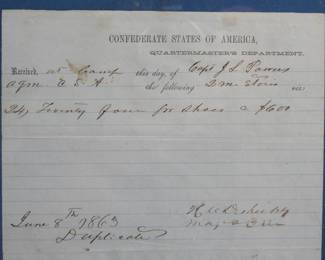 CONFEDERATE STATES OF AMERICA,
QUARTERMASTER'S DEPARTMENT.
Received, at Camp this day of Capt J. L. Powers
the following Q.M. Stores viz:
24 Twenty four pr Shoes @ $6.00
June 8th 1863
Duplicate